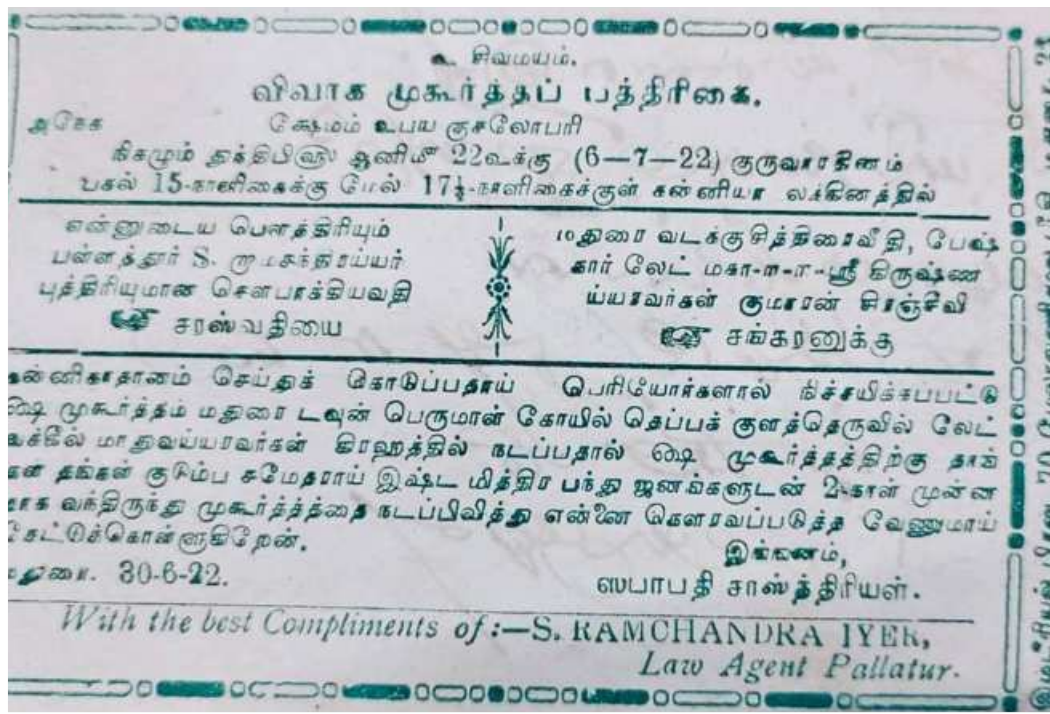 உ சிவமயம்.
விவாக முகூர்த்தப் பத்திரிகை.
அநேக க்ஷேமம் உபய குசலோபரி
நிகழும் துந்துபிவூ ஆனிமீ 22உக்கு (6—7—22) குருவாரதினம்
பகல் 15-நாளிகைக்கு மேல் 17½-நாளிகைக்குள் கன்னியா லக்கினத்தில்
என்னுடைய பௌத்திரியும்
பள்ளத்தூர் S. ராமசந்திரய்யர்
புத்திரியுமான சௌபாக்கியவதி
சரஸ்வதியை
மதுரை வடக்குசித்திரைவீதி, பேஷ்
கார் லேட் மகா-ா-ா-ஸ்ரீ கிருஷ்ண
ய்யரவர்கள் குமாரன் சிரஞ்சீவி
சங்கரனுக்கு
கன்னிகாதானம் செய்துக் கொடுப்பதாய் பெரியோர்களால் நிச்சயிக்கப்பட்டு
௸ முகூர்த்தம் மதுரை டவுன் பெருமாள் கோயில் தெப்பக் குளத்தெருவில் லேட்
வக்கீல் மாதுவய்யரவர்கள் கிரஹத்தில் நடப்பதால் ௸ முகூர்த்தத்திற்கு தாங்
கள் தங்கள் குடும்ப சமேதராய் இஷ்ட மித்திர பந்து ஜனங்களுடன் 2-நாள் முன்ன
தாக வந்திருந்து முகூர்த்த்த்தை நடப்பிவித்து என்னை கௌரவப்படுத்த வேணுமாய்
கேட்டுக்கொள்ளுகிறேன்.
இங்கனம்,
மதுரை. 30-6-22.
ஸபாபதி சாஸ்த்திரியள்.
With the best Compliments of :—S. RAMCHANDRA IYER,
Law Agent Pallatur.